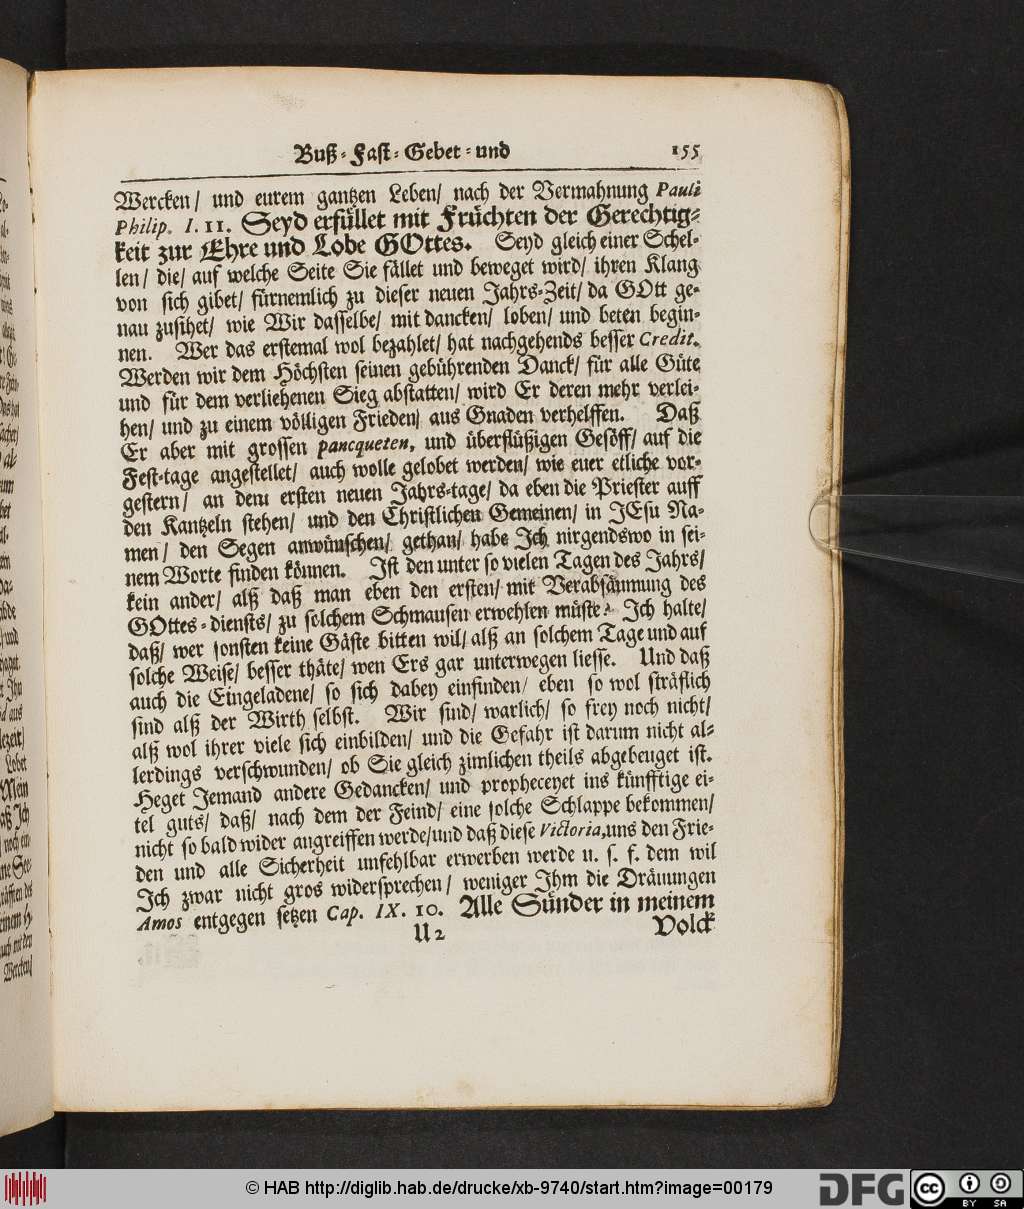 Buß-Fast-Gebet-und 155
Wercken/ und eurem gantzen Leben/ nach der Vermahnung Pauli
Philip. I. 11. Seyd erfüllet mit Früchten der Gerechtig-
keit zur Ehre und Lobe GOttes. Seyd gleich einer Schel-
len/ die/ auf welche Seite Sie fället und beweget wird/ ihren Klang
von sich gibet/ fürnemlich zu dieser neuen Jahrs-Zeit/ da GOtt ge-
nau zusihet/ wie Wir dasselbe/ mit dancken/ loben/ und beten begin-
nen. Wer das erstemal wol bezahlet/ hat nachgehends besser Credit.
Werden wir dem Höchsten seinen gebührenden Danck/ für alle Güte
und für dem verliehenen Sieg abstatten/ wird Er deren mehr verlei-
hen/ und zu einem völligen Frieden/ aus Gnaden verhelffen. Daß
Er aber mit grossen pancqueten, und überflüßigen Gesöff/ auf die
Fest-tage angestellet/ auch wolle gelobet werden/ wie euer etliche vor-
gestern/ an dem ersten neuen Jahrs-tage/ da eben die Priester auff
den Kantzeln stehen/ und den Christlichen Gemeinen/ in JEsu Na-
men/ den Segen anwünschen/ gethan/ habe Ich nirgendswo in sei-
nem Worte finden können. Ist den unter so vielen Tagen des Jahrs/
kein ander/ alß daß man eben den ersten/ mit Verabsäumung des
GOttes-diensts/ zu solchem Schmausen erwehlen müste? Ich halte/
daß/ wer sonsten keine Gäste bitten wil/ alß an solchem Tage und auf
solche Weise/ besser thäte/ wen Ers gar unterwegen liesse. Und daß
auch die Eingeladene/ so sich dabey einfinden/ eben so wol sträflich
sind alß der Wirth selbst. Wir sind/ warlich/ so frey noch nicht/
alß wol ihrer viele sich einbilden/ und die Gefahr ist darum nicht al-
lerdings verschwunden/ ob Sie gleich zimlichen theils abgebeuget ist.
Heget Jemand andere Gedancken/ und propheceyet ins künfftige ei-
tel guts/ daß/ nach dem der Feind/ eine solche Schlappe bekommen/
nicht so bald wider angreiffen werde/und daß diese Victoria,uns den Frie-
den und alle Sicherheit unfehlbar erwerben werde u. s. f. dem wil
Ich zwar nicht gros widersprechen/ weniger Ihm die Dräuungen
Amos entgegen setzen Cap. IX. 10. Alle Sünder in meinem
U 2 Volck
© HAB http://diglib.hab.de/drucke/xb-9740/start.htm?image=00179
DFG cc BY SA